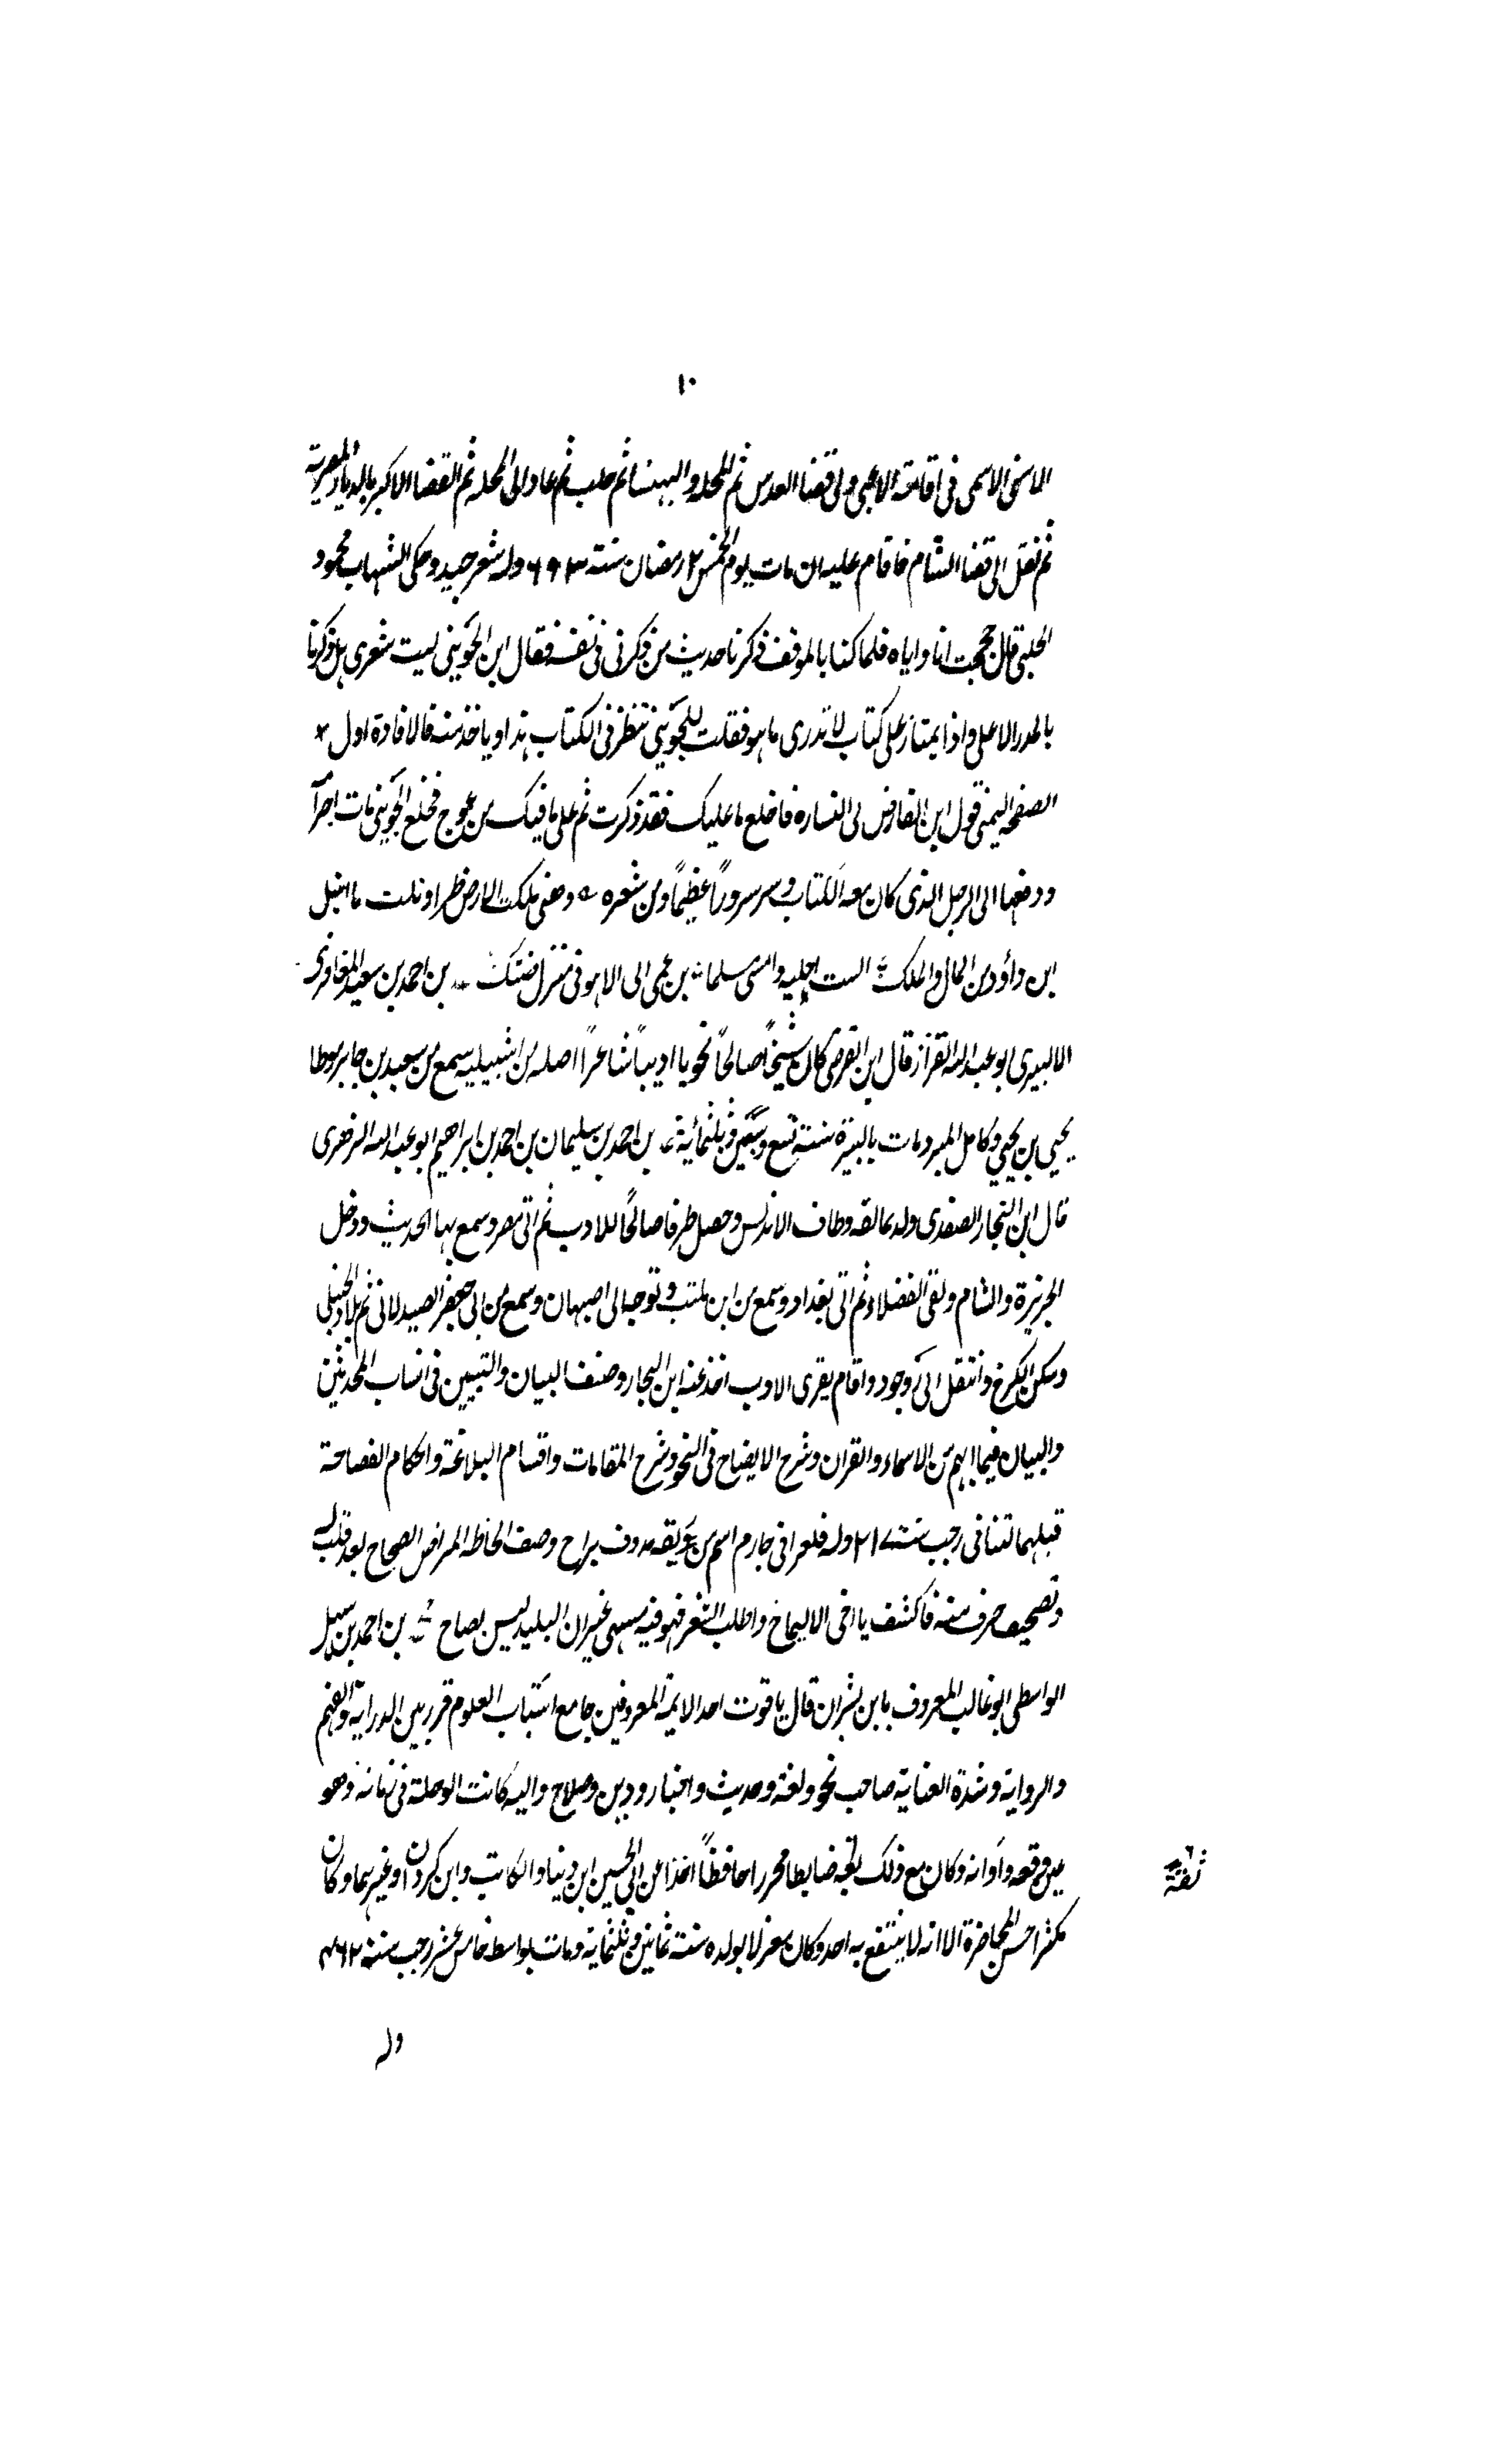 ١٠
الاسنى الاسمى فى اقامة الاعمى ولى قضا القدس ثم المحله والبهنسا ثم حلب ثم عاد الى المحله ثم القضا الاكبر بالديار المصرية
ثم نقل الى قضا الشام فاقام عليه ان مات يوم الخمس ٢ رمضان سنة ٦٩٣ وله شعر جيد وحكى الشهاب محمود
الحلبى قال حججت انا واياه فلما كنا بالموقف ذكرنا حديث من ذكرنى فى نفسه فقال ابن الجوينى ليت شعرى هل ذكرنا
بالملا الاعلى واذا بمتاز على كتاب لا ندرى ما هو فقلت للجوينى ننظر فى الكتاب هذا وياخذ منه فالا فاذه اول
الصفحه اليمنى قول ابن الفارض لى البشارة فاخلع ما عليك فقد ذكرت ثم على ما فيك من عوج فخلع الجوينى
ودفعها الى الرجل الذى كان معه الكتاب وسر سرورا عظيمًا ومن شعره وهنى ملكت الارض طرا ونلت ما انيل
ابن داؤد من المال والملك الست اخليه وامسى مسلما بن عمى الى الاهو فى منزل ضنك بن احمد بن سعيد المعافرى
الالبيرى ابو عبد الله القزاز قال ابن الفرضى كان شيخًا صالحًا نحويا اديبًا شاعرًا اصله من اشبيليه سمع من سعيد بن جابر موطا
يحيى بن يحيى وكامل المبرد مات بالبيرة سنة تسع وسبعين وثلثمائة بن احمد بن سليمان بن احمد بن ابراهيم ابو عبد الله الزهرى
قال ابن النجار الصفدى ولد بمالقه وطاف الاندلس وحصل طرفا صالحًا للادب ثم اتى مصر وسمع بها الحديث ودخل
الجزيرة والشام ولقى الفضلاء ثم اتى بغداد وسمع من ابن كليب وتوجه الى اصبهان وسمع من ابى جعفر الصيدلانى ثم بلاد الجبلى
وسكن الكرخ وانتقل الى بروجود واقام يقرى الادب اخذ عنه ابن النجار وصنف البيان والتبيين فى انساب المحدثين
والبيان فيما ابهم من الاسماء والقران وشرح الايضاح فى النحو وشرح المقامات واقسام البلاغة واحكام الفصاحة
قبلهما لتنا فى رجب سنة ٢١٧ وله فلعر افى جارم اسم من عويقه مدوف براح وصف الحاظه المراض الصحاح بعد قلب له
وتصحيف حرف منه فاكشف يا اخى الايجاح واطلب الشعر فهو فيه مسمى غير ان البليد ليس بصاح بن احمد بن سهل
الواسطى ابو غالب المعروف بابن بشران قال ياقوت احد الايمة المعروفين جامع اشتات العلوم قرر بين الدراية والفهم
والرواية وشدة العناية صاحب نحو ولغة وحديث واخبار ودين وصلاح واليه كانت الرحلة فى زمانه وهو
عين وقته واوانه وكان مع ذلك ثقه ضابطا محررا حافظًا اخذ عن ابى الحسين ابن دينار الكاتب وابن كردان وغيرهما وكان
مكثرا حسن المحاضرة الا انه لا ينتفع به احد وكان معتزلا بولده سنة ثمانين وثلثماية ومات بواسط خامس عشر رجب سنة ٤٦٢
ثقة
وله